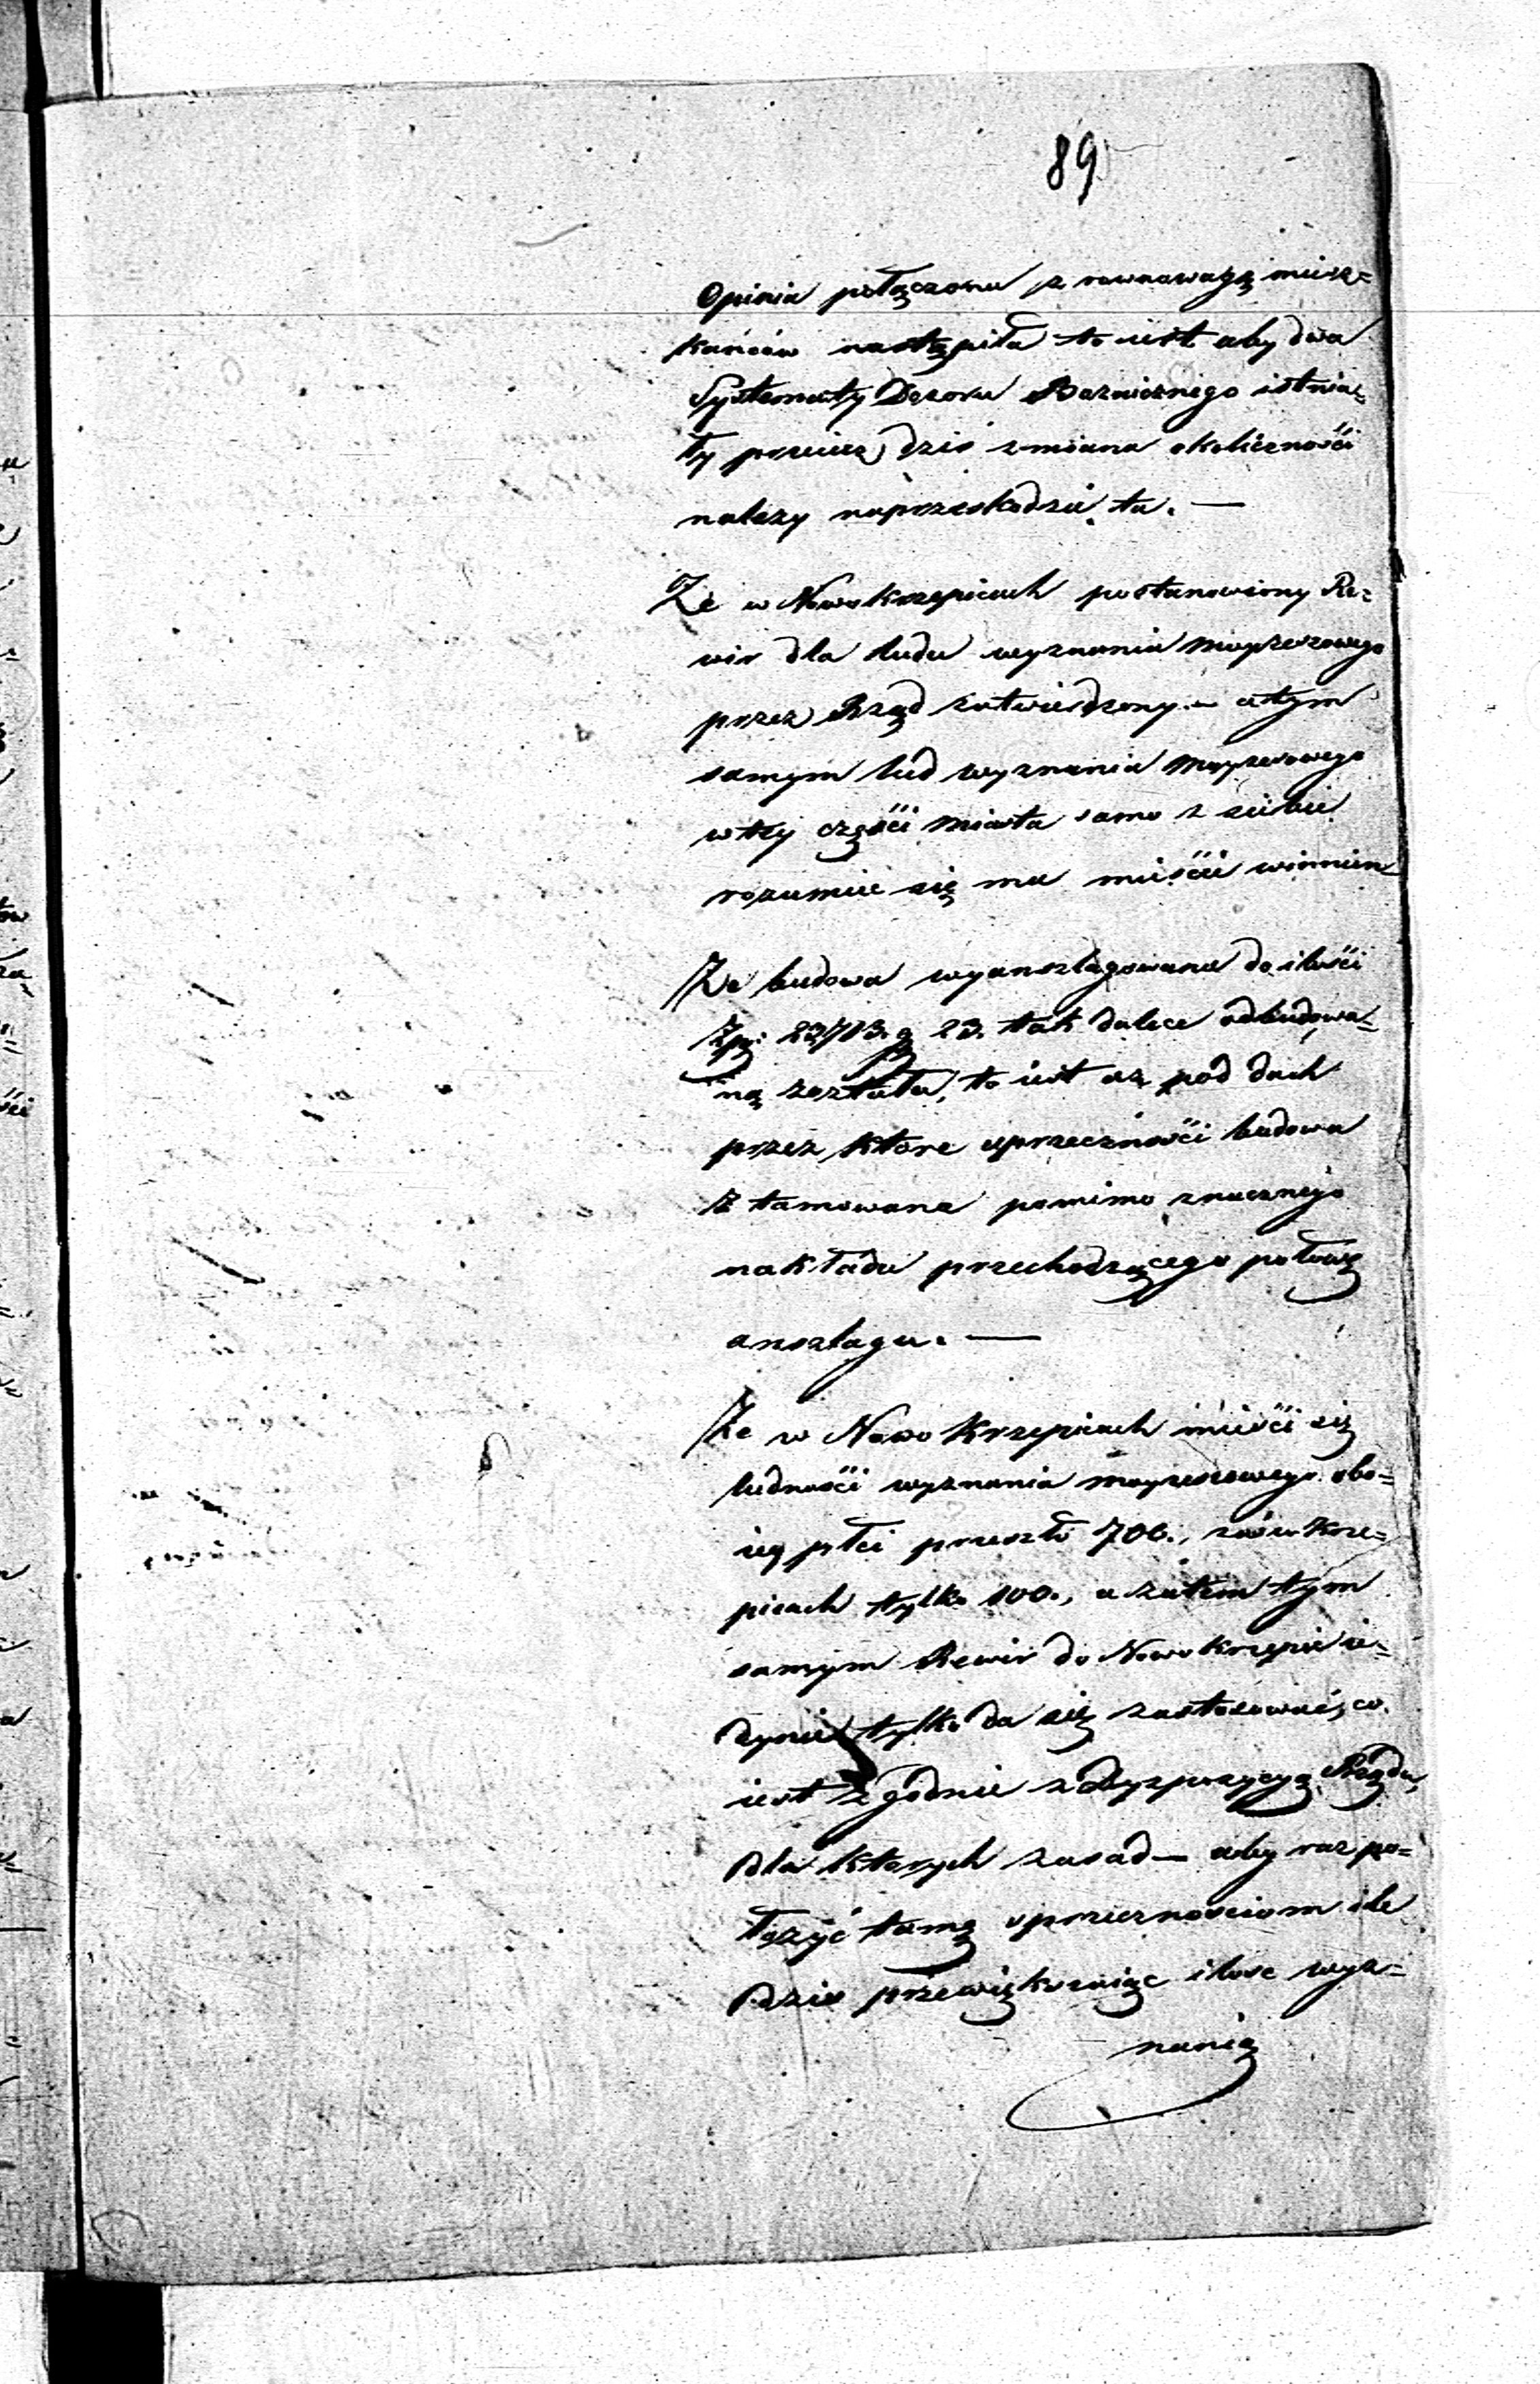 89
Opinia połączona z rownowagą miesz=
kańców nastąpiła to iest aby dwa
Systematy Dozoru Boznicznego istnia=
ły przeciez dziś zmiana okoliczności
należy naprzeskodzie ta. —
Ze w Nowokrzepicach postanowiony Re=
wir dla ludu wyznania Moyżeszowego
przez Rząd zatwierdzony — a tym
samym lud wyznania Moyżeszowego
w tey części Miasta samo z siebie
rozumie się ma mieścić winnien
Ze budowa wyanszlagowana do ilości
Zpo: 23,713. g 23. tak dalece odbudowa=
ną została, to iest az pod dach
przez ktore sprzeczności budowa
z tamowana pomimo znacznego
nakładu przechodzącego połowę
anszlagu. —
Ze w Nowo Krzepicach mieści się
ludności wyznania Moyżeszowego obo=
iey płci przeszło 700., zaś w Krze=
picach tylko 100., a zatem tym
samym Rewir do Nowokrzepic ie=
dynie tylko da się zastosować, co
iest zgodnie z Dyspozycyą Rządu,
Dla ktorych zasad — aby raz po=
łożyć tamę sprzecznosciom ile
Dziś przewiększaiąc ilosc wyz=
nania